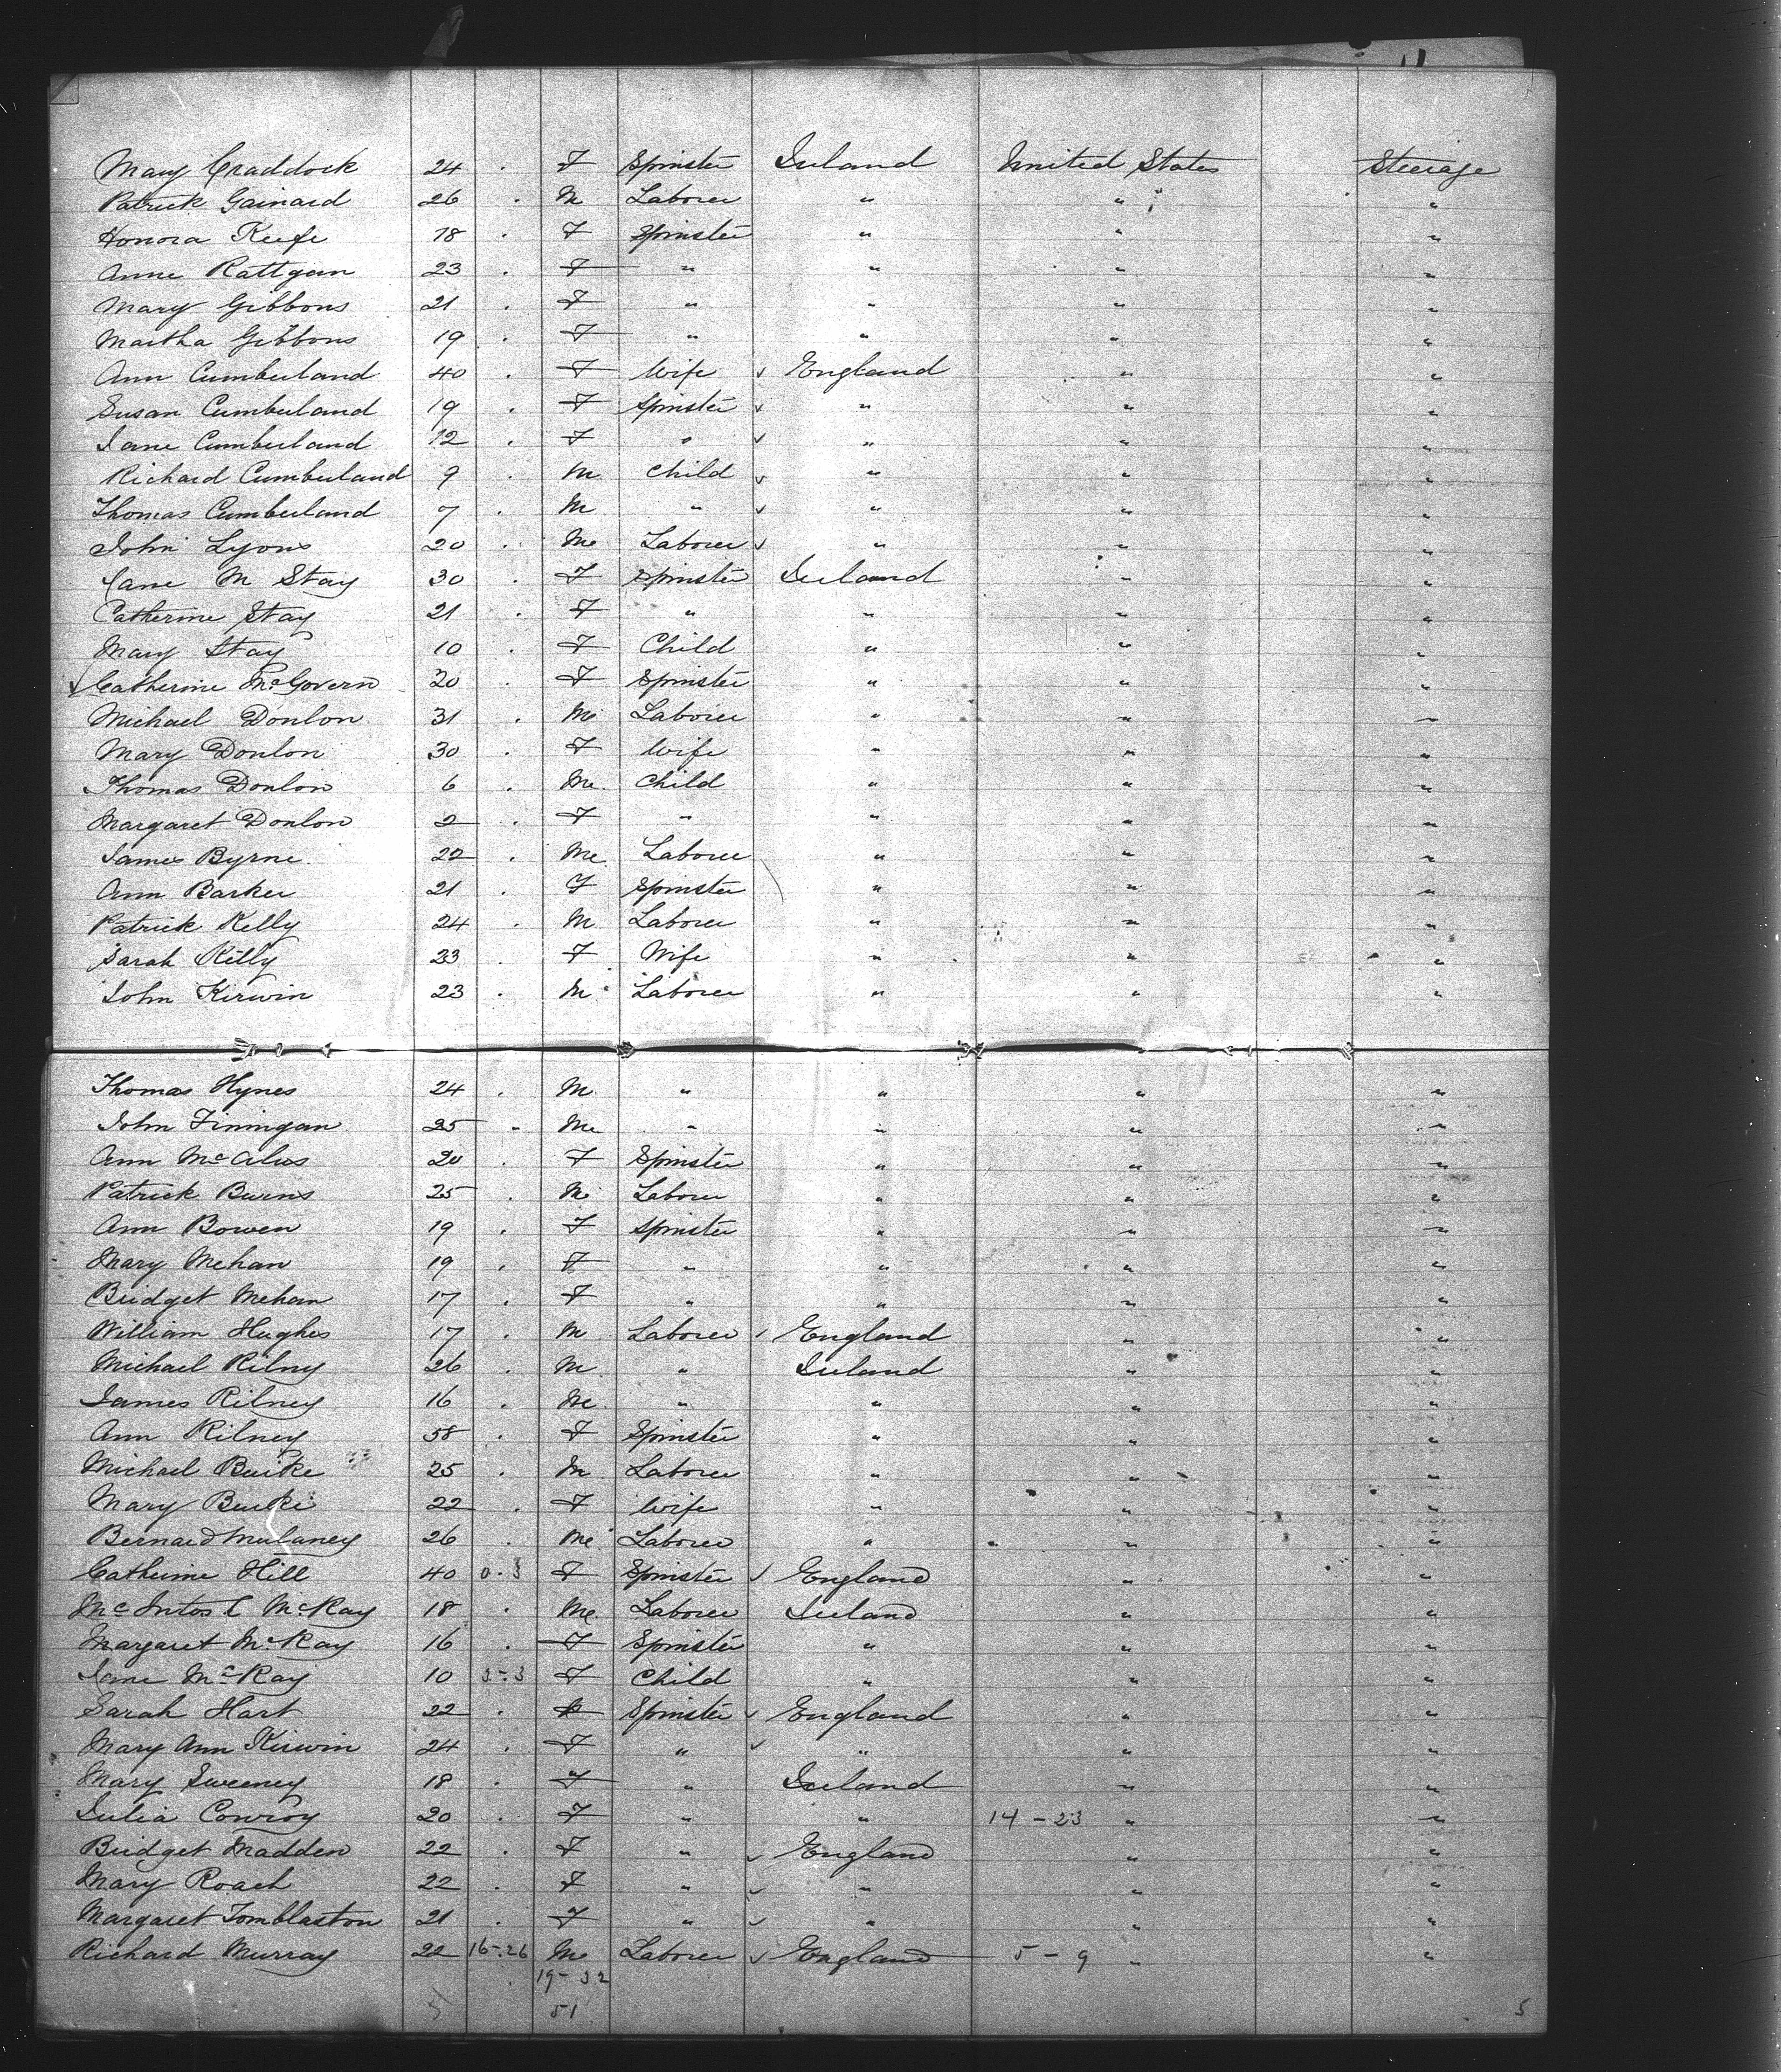 Mary Craddock 24 . F Spinster Ireland United States Steerage
Patrick Gainard 26 . M Laborer " " "
Honora Keefe 18 . F Spinster " " "
Anne Rattgan 23 . F " " " "
Mary Gibbons 21 . F " " " "
Martha Gibbons 19 . F " " " "
Ann Cumberland 40 . F Wife ✓ England " "
Susan Cumberland 19 . F Spinster ✓ " " "
Jane Cumberland 12 . F " ✓ " " "
Richard Cumberland 9 . M Child ✓ " " "
Thomas Cumberland 7 . M " ✓ " " "
John Lyons 20 . M Laborer ✓ " " "
Jane M Stay 30 . F Spinster Ireland " "
Catherine Stay 21 . F " " " "
Mary Stay 10 . F Child " " "
✓ Catherine McGovern 20 . F Spinster " " "
Michael Donlon 31 . M Laborer " " "
Mary Donlon 30 . F Wife " " "
Thomas Donlon 6 . M Child " " "
Margaret Donlon 2 . F " " " "
James Byrne 22 . M Laborer " " "
Ann Barker 21 . F Spinster " " "
Patrick Kelly 24 . M Laborer " " "
Sarah Kelly 23 . F Wife " " "
John Kirwin 23 . M Laborer " " "
Thomas Hynes 24 . M " " " "
John Finnigan 25 . M " " " "
Ann 20 . F Spinster " " "
Patrick Burns 25 . M Laborer " " "
Ann Bowen 19 . F Spinster " " "
Mary Mehan 19 . F " " " "
Bridget Mehan 17 . F " " " "
William Hughes 17 . M Laborer ✓ England " "
Michael Rilney 26 . M " Ireland " "
James Rilney 16 . M " " " "
Ann Rilney 58 . F Spinster " " "
Michael Burke 25 . M Laborer " " "
Mary Burke 22 . F Wife " " "
Bernard Mulaney 26 . M Laborer " " "
Catherine Hill 40 0-3 F Spinster ✓ England " "
McKay 18 . M Laborer Ireland " "
Margaret McKay 16 . F Spinster " " "
Jane McKay 10 3-3 F Child " " "
Sarah Hart 22 . F Spinster ✓ England " "
Mary Ann Kirwin 24 . F " ✓ " " "
Mary Sweeney 18 . F " Ireland " "
Julia Conroy 20 . F " " 14-23 " "
Bridget Madden 22 . F " ✓ England " "
Mary Roach 22 . F " ✓ " " "
Margaret Tomblaston 21 . F " ✓ " " "
Richard Murray 22 16-26 M Laborer ✓ England 5-9 " "
19-32
51
5